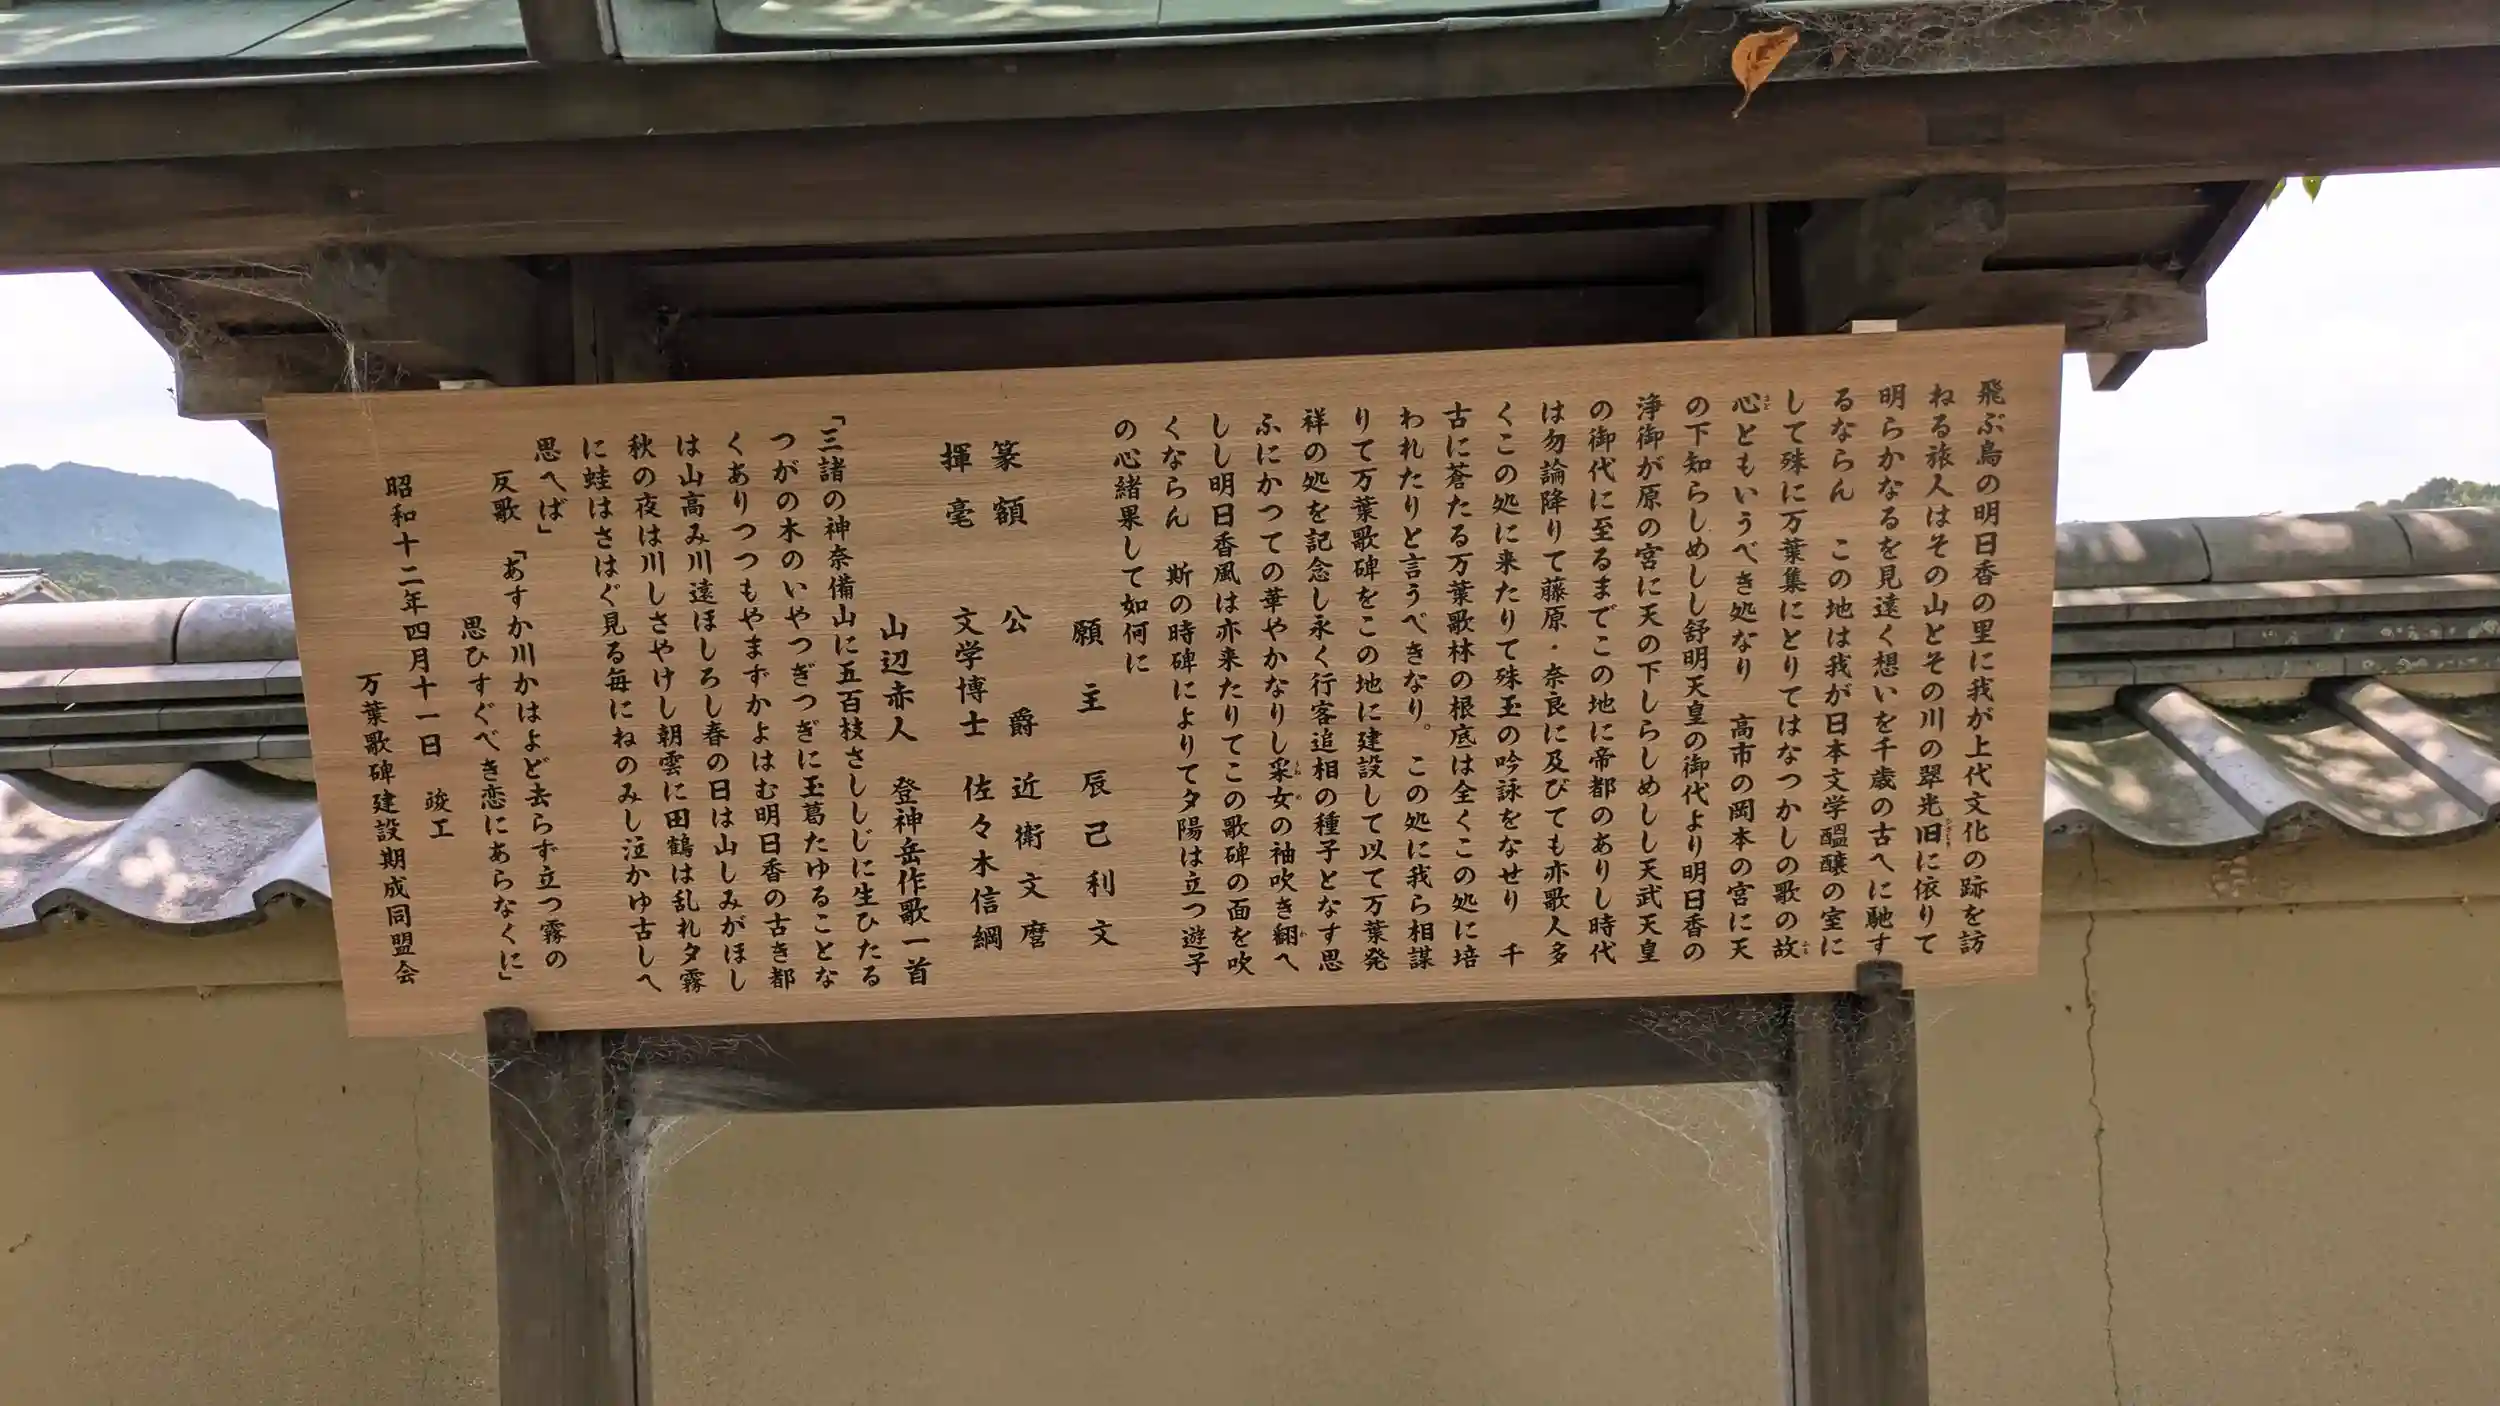 飛ぶ鳥の明日香の里に我が上代文化の跡を訪
ねる旅人はその山とその川の翠光旧に依りて
明らかなるを見遠く想いを千歳の古へに馳す
るならん　この地は我が日本文学醞醸の室に
して殊に万葉集にとりてはなつかしの歌の故
心ともいうべき処なり　高市の岡本の宮に天
の下知らしめしし舒明天皇の御代より明日香の
浄御が原の宮に天の下しらしめしし天武天皇
の御代に至るまでこの地に帝都のありし時代
は勿論降りて藤原・奈良に及びても亦歌人多
くこの処に来たりて殊玉の吟詠をなせり　千
古に蒼たる万葉歌林の根底は全くこの処に培
われたりと言うべきなり。この処に我ら相謀
りて万葉歌碑をこの地に建設して以て万葉発
祥の処を記念し永く行客追相の種子となす思
ふにかつての華やかなりし采女の袖吹き翻へ
しし明日香風は亦来たりてこの歌碑の面を吹
くならん　斯の時碑によりて夕陽は立つ遊子
の心緒果して如何に
願主　辰己利文
篆額　公爵　近衛文麿
揮毫　文学博士　佐々木信綱
山辺赤人　登神岳作歌一首
「三諸の神奈備山に五百枝さししじに生ひたる
つがの木のいやつぎつぎに玉葛たゆることな
くありつつもやまずかよはむ明日香の古き都
は山高み川遠ほしろし春の日は山しみがほし
秋の夜は川しさやけし朝雲に田鶴は乱れ夕霧
に蛙はさはぐ見る毎にねのみし泣かゆ古しへ
思へば」
反歌　「あすか川かはよど去らず立つ霧の
思ひすぐべき恋にあらなくに」
昭和十二年四月十一日　竣工
万葉歌碑建設期成同盟会